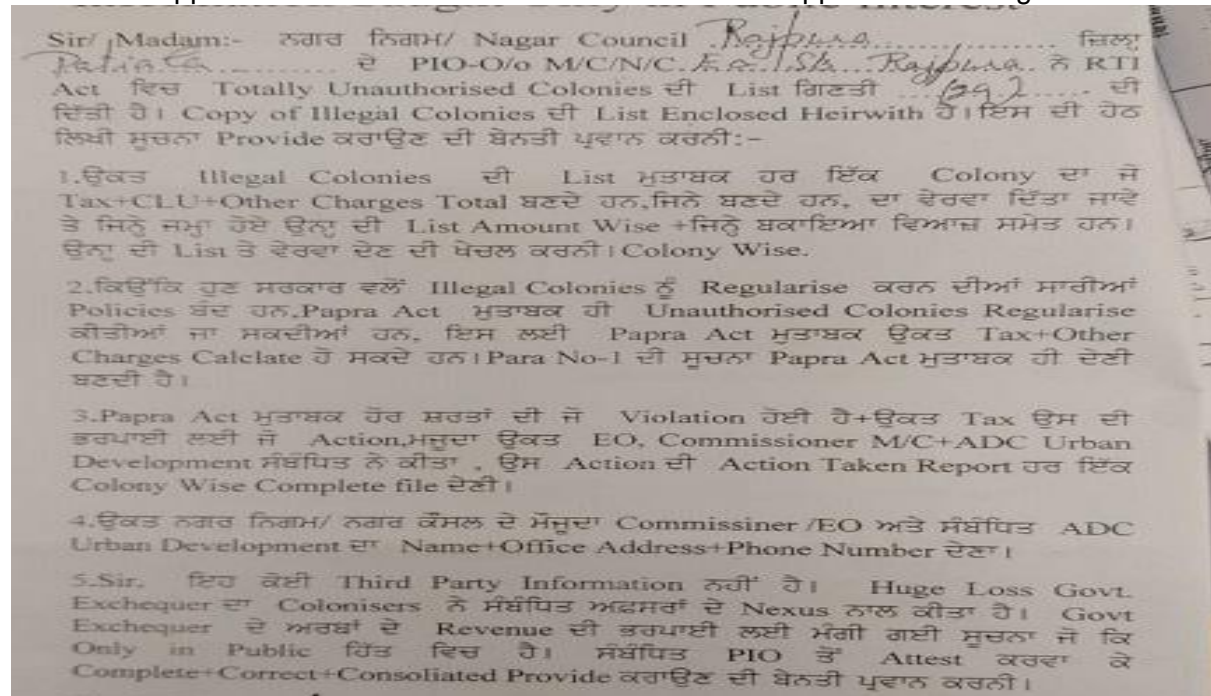 Sir/ Madam:- ਨਗਰ ਨਿਗਮ/ Nagar Council Rajpura ਜ਼ਿਲ੍ਹਾ
Patiala ਦੇ PIO-O/o M/C/N/C. Rajpura. ਨੇ RTI
Act ਵਿਚ Totally Unauthorised Colonies ਦੀ List ਗਿਣਤੀ ਦੀ
ਦਿੱਤੀ ਹੈ। Copy of Illegal Colonies ਦੀ List Enclosed Heirwith ਹੈ।ਇਸ ਦੀ ਹੇਠ
ਲਿਖੀ ਸੂਚਨਾ Provide ਕਰਾਉਣ ਦੀ ਬੇਨਤੀ ਪ੍ਰਵਾਨ ਕਰਨੀ:-
1.ਉਕਤ Illegal Colonies ਦੀ List ਮੁਤਾਬਕ ਹਰ ਇੱਕ Colony ਦਾ ਜੋ
Tax+CLU+Other Charges Total ਬਣਦੇ ਹਨ,ਜਿਨੇ ਬਣਦੇ ਹਨ, ਦਾ ਵੇਰਵਾ ਦਿੱਤਾ ਜਾਵੇ
ਤੇ ਜਿਨ੍ਹੇ ਜਮ੍ਹਾ ਹੋਏ ਉਨ੍ਹਾ ਦੀ List Amount Wise +ਜਿਨ੍ਹੇ ਬਕਾਇਆ ਵਿਆਜ਼ ਸਮੇਤ ਹਨ।
ਉਨ੍ਹਾ ਦੀ List ਤੇ ਵੇਰਵਾ ਦੇਣ ਦੀ ਖੇਚਲ ਕਰਨੀ।Colony Wise.
2.ਕਿਉਂਕਿ ਹੁਣ ਸਰਕਾਰ ਵਲੋਂ Illegal Colonies ਨੂੰ Regularise ਕਰਨ ਦੀਆਂ ਸਾਰੀਆਂ
Policies ਬੰਦ ਹਨ.Papra Act ਮੁਤਾਬਕ ਹੀ Unauthorised Colonies Regularise
ਕੀਤੀਆਂ ਜਾ ਸਕਦੀਆਂ ਹਨ, ਇਸ ਲਈ Papra Act ਮੁਤਾਬਕ ਉਕਤ Tax+Other
Charges Calclate ਹੋ ਸਕਦੇ ਹਨ।Para No-1 ਦੀ ਸੂਚਨਾ Papra Act ਮੁਤਾਬਕ ਹੀ ਦੇਣੀ
ਬਣਦੀ ਹੈ।
3.Papra Act ਮੁਤਾਬਕ ਹੋਰ ਸ਼ਰਤਾਂ ਦੀ ਜੋ Violation ਹੋਈ ਹੈ+ਉਕਤ Tax ਉਸ ਦੀ
ਭਰਪਾਈ ਲਈ ਜੋ Action,ਮਜੂਦਾ ਉਕਤ EO, Commissioner M/C+ADC Urban
Development ਸੰਬੰਧਿਤ ਨੇ ਕੀਤਾ , ਉਸ Action ਦੀ Action Taken Report ਹਰ ਇੱਕ
Colony Wise Complete file ਦੇਣੀ।
4.ਉਕਤ ਨਗਰ ਨਿਗਮ/ ਨਗਰ ਕੌਂਸਲ ਦੇ ਮੌਜੂਦਾ Commissiner /EO ਅਤੇ ਸੰਬੰਧਿਤ ADC
Urban Development ਦਾ Name+Office Address+Phone Number ਦੇਣਾ।
5.Sir, ਇਹ ਕੋਈ Third Party Information ਨਹੀਂ ਹੈ। Huge Loss Govt.
Exchequer ਦਾ Colonisers ਨੇ ਸੰਬੰਧਿਤ ਅਫ਼ਸਰਾਂ ਦੇ Nexus ਨਾਲ ਕੀਤਾ ਹੈ। Govt
Exchequer ਦੇ ਅਰਬਾਂ ਦੇ Revenue ਦੀ ਭਰਪਾਈ ਲਈ ਮੰਗੀ ਗਈ ਸੂਚਨਾ ਜੋ ਕਿ
Only in Public ਹਿੱਤ ਵਿਚ ਹੈ। ਸੰਬੰਧਿਤ PIO ਤੋਂ Attest ਕਰਵਾ ਕੇ
Complete+Correct+Consoliated Provide ਕਰਾਉਣ ਦੀ ਬੇਨਤੀ ਪ੍ਰਵਾਨ ਕਰਨੀ।